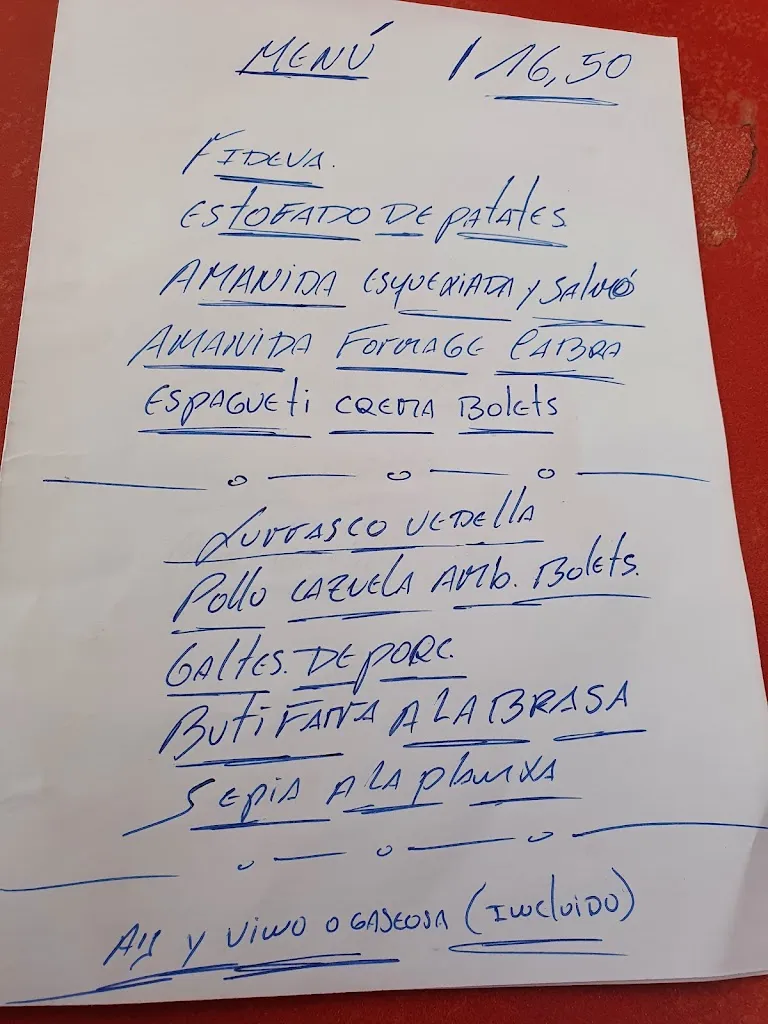 MENÚ / 16,50
FIDEUA.
ESTOFADO DE PATATES
AMANIDA ESQUEXIADA Y SALMÓ
AMANIDA FORMAGE CABRA
ESPAGUETI CREMA BOLETS
CURRASCO VEDELLA
POLLO CAZUELA AMB. BOLETS.
GALTES. DE PORC.
BUTIFARRA A LA BRASA
SEPIA A LA PLANXA
Y VINO O GASEOSA (INCLUIDO)